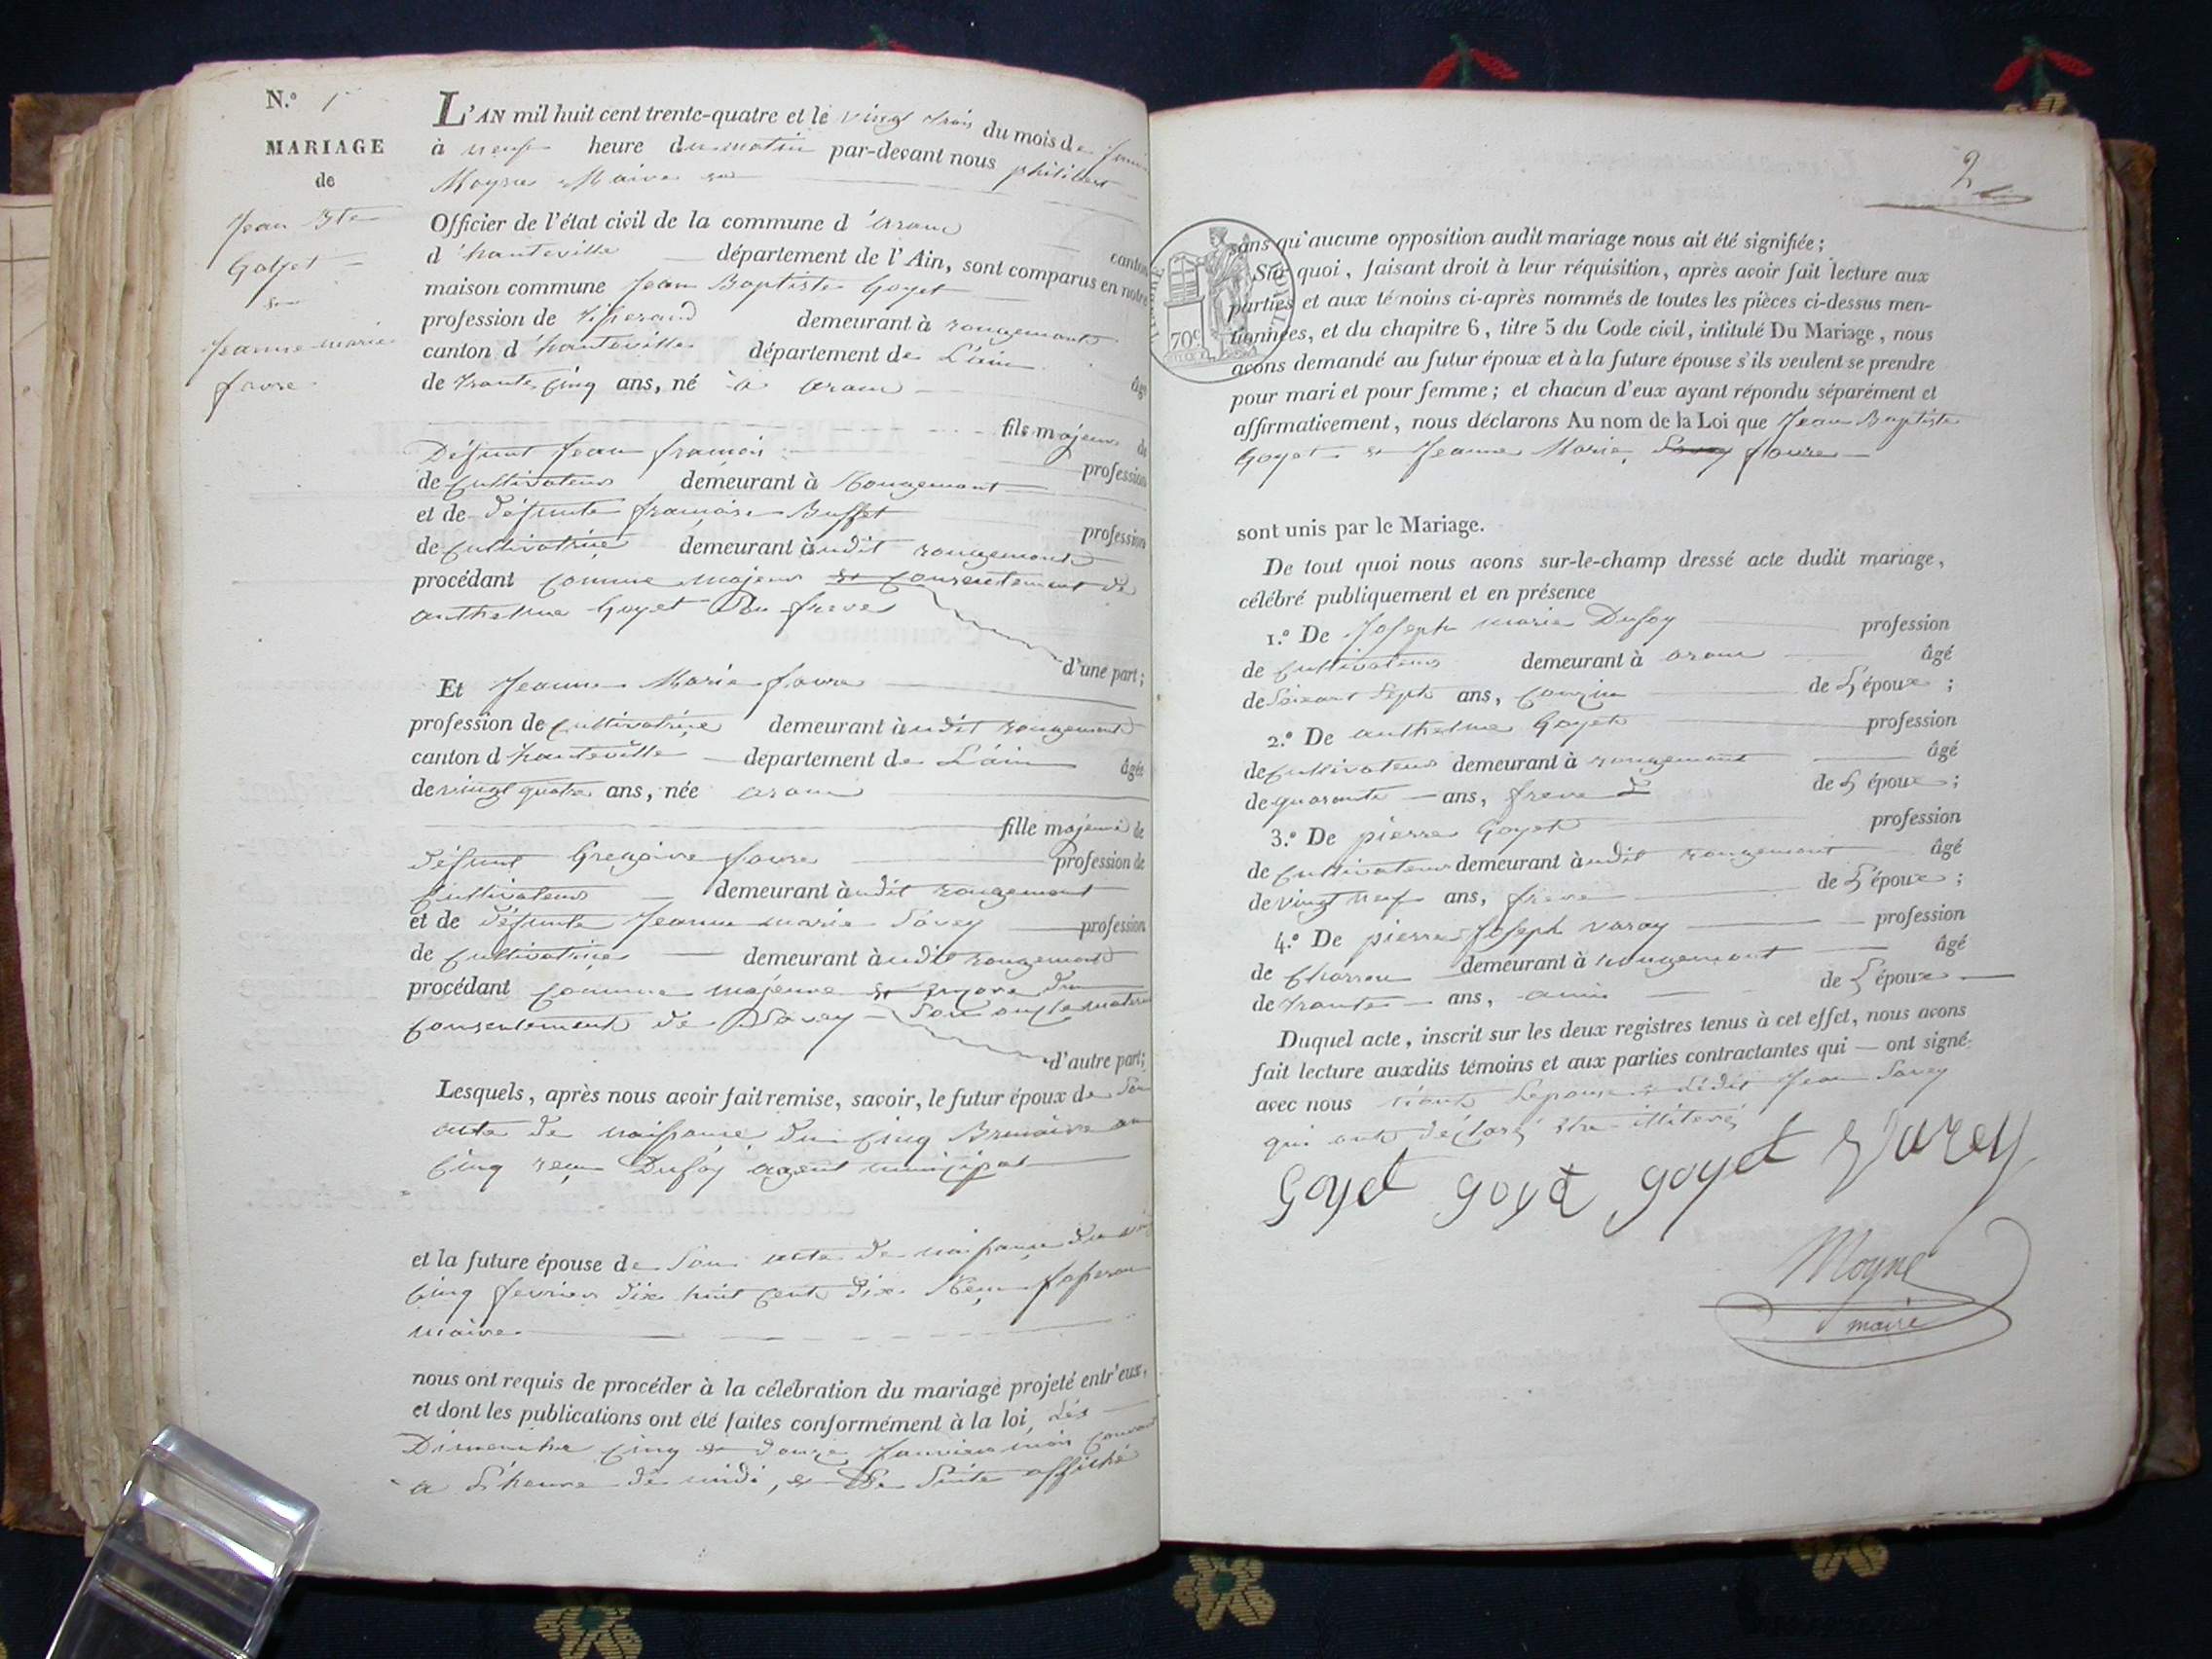 N.º 1
MARIAGE
de
Jean Bte
Goyet
et
jeanne marie
favre
L'AN mil huit cent trente-quatre et le vingt trois du mois de
à neuf heure du matin par-devant nous philibert
Moyne Maire
Officier de l'état civil de la commune d'aranc canton
d'hauteville département de l'Ain, sont comparus en notre
maison commune Jean Baptiste Goyet
profession de tisserand demeurant à rougemont
canton d'hauteville département de L'ain âgé
de trente cinq ans, né à aranc
fils majeur de
Défunt Jean françois profession
de cultivateur demeurant à Rougemont
et de défunte françoise Buffet profession
de cultivatrice demeurant audit rougemont
procédant comme majeur et consentement de
anthelme Goyet son frere
d'une part;
Et Jeanne Marie favre
profession de cultivatrice demeurant audit rougemont
canton d'hauteville departement de L'ain âgée
de vingt quatre ans, née aranc
fille majeure de
défunt Gregoire favre profession de
cultivateur demeurant audit rougemont
et de défunte Jeanne marie Savey profession
de cultivatrice demeurant audit rougemont
procédant comme majeure et encore du
consentement de Savey son oncle maternel
d'autre part;
Lesquels, après nous avoir fait remise, savoir, le futur époux de son
acte de naissance du cinq Brumaire an
cinq reçu Dufoy agent municipal
et la future épouse de son acte de naissance du
cinq fevrier dix huit cent dix Reçu
maire
nous ont requis de procéder à la célébration du mariage projeté entr'eux,
et dont les publications ont été faites conformément à la loi, les
Dimanche cinq et douze Janvier mois courant
a L'heure de midi, et De Suite affiché
2
TIMBRE ROYAL
70c
sans qu'aucune opposition audit mariage nous ait été signifiée;
Sur quoi, faisant droit à leur réquisition, après avoir fait lecture aux
parties et aux témoins ci-après nommés de toutes les pièces ci-dessus men-
tionnées, et du chapitre 6, titre 5 du Code civil, intitulé Du Mariage, nous
avons demandé au futur époux et à la future épouse s'ils veulent se prendre
pour mari et pour femme; et chacun d'eux ayant répondu séparément et
affirmativement, nous déclarons Au nom de la Loi que Jean Baptiste
Goyet et Jeanne Marie Savey favre
sont unis par le Mariage.
De tout quoi nous avons sur-le-champ dressé acte dudit mariage,
célébré publiquement et en présence
1.º De Joseph marie Dufoy profession
de cultivateur demeurant à aranc âgé
de Soixant Sept ans, couzin de L'époux;
2.º De anthelme Goyet profession
de cultivateur demeurant à rougemont âgé
de quarante ans, frere de L'époux;
3.º De pierre Goyet profession
de cultivateur demeurant audit rougemont âgé
de vingt neuf ans, frere de L'époux;
4.º De pierre Joseph varay profession
de Charron demeurant à rougemont âgé
de trante ans, amis de L'époux
Duquel acte, inscrit sur les deux registres tenus à cet effet, nous avons
fait lecture auxdits témoins et aux parties contractantes qui ont signé
avec nous non Lepouse et Ledit Jean Savey
qui ont déclaré être illiteré
Goyet goyet goyet Varey
Moyne
maire